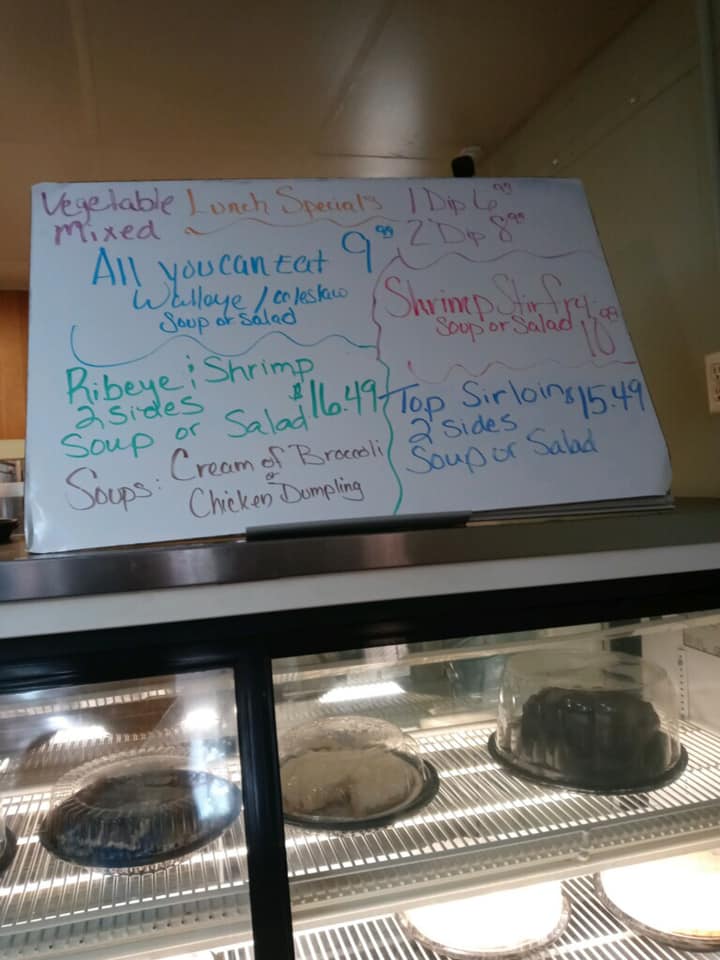 Vegetable Lunch Specials 1 Dip 6.99
Mixed 2 Dip 8.99
All you can Eat 9.99
Walleye / coleslaw
Soup or Salad
Shrimp Stirfry
Soup or Salad 10.99
Ribeye & Shrimp
2 sides $16.49
Soup or Salad
Top Sirloin $15.49
2 sides
Soup or Salad
Soups: Cream of Broccoli
or
Chicken Dumpling